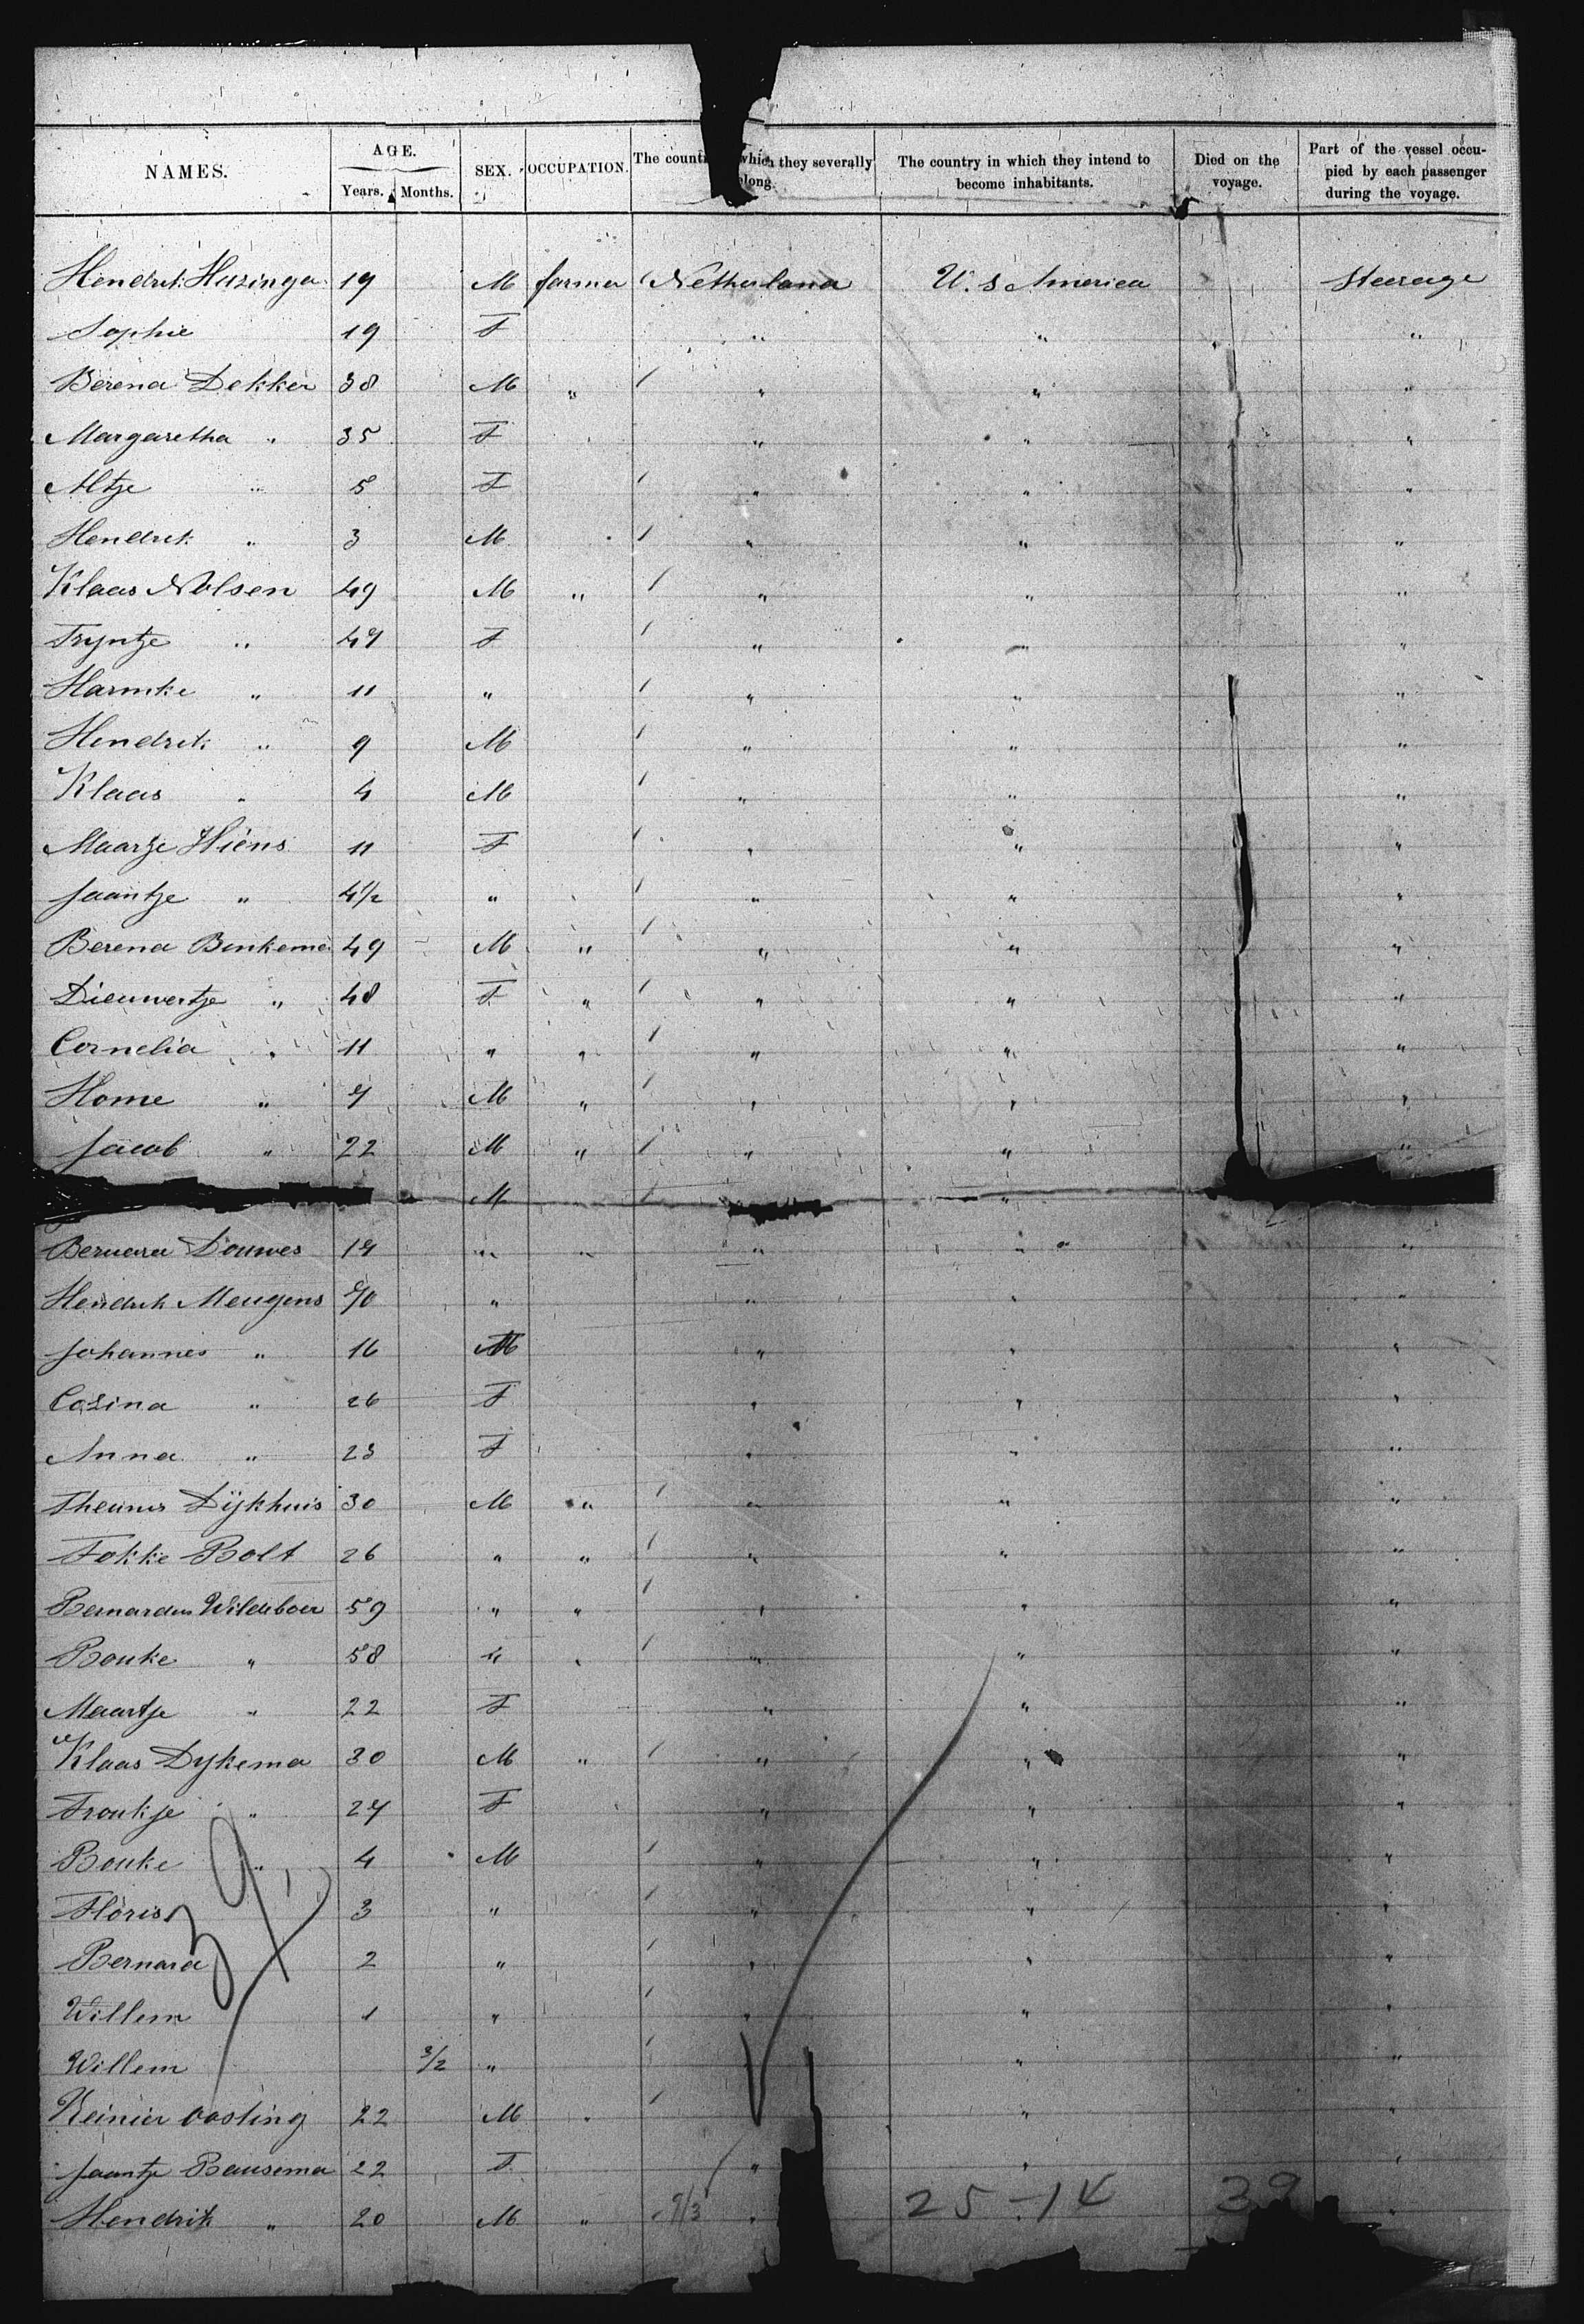 NAMES. AGE. SEX. OCCUPATION. The count which they severally The country in which they intend to Died on the Part of the vessel occu-
Years. Months. elong. become inhabitants. voyage. pied by each passenger
during the voyage.
Hendrik Huzinga 19 M farmer Netherland U. S America Steerage
Sophie 19 F " " "
Berena Dekker 38 M " " " "
Margaretha " 35 F " " "
Altje " 5 F " " "
Hendrik " 3 M " " "
Klaas Nolsen 49 M " " " "
Tryntje " 47 F " " "
Harmke " 11 " " " "
Hendrik " 9 M " " "
Klaas " 4 M " " "
Maartje Hiens 11 F " " "
Jaantje " 4 1/2 " " " "
Berena Benkema 49 M " " " "
Dieuwertje " 48 F " " " "
Cornelia " 11 " " " " "
Home " 7 M " " " "
Jacob " 22 M " " " "
M "
Douwes 17 " " " " "
Hendrik Meugens 70 " " " "
Johannes " 16 M " " "
Cosina " 26 F " " "
Anna " 23 F " " "
Theunis Dijkhuis 30 M " " " "
Fokke Bolt 26 " " " " "
Bernardus Wildeboer 59 " " " " "
Bouke " 58 " " " " "
Maartje " 22 F " " "
Klaas Dykema 30 M " " " "
Froukje " 27 F " " "
Bouke " 4 M " " "
Floris 3 " " " "
Bernard 2 " " " "
Willem 1 " " " "
Willem 3/2 " " "
Reinier Oosting 22 M " " "
Jaantje Bausema 22 F " " "
Hendrik " 20 M " " 25-14 39 "
39